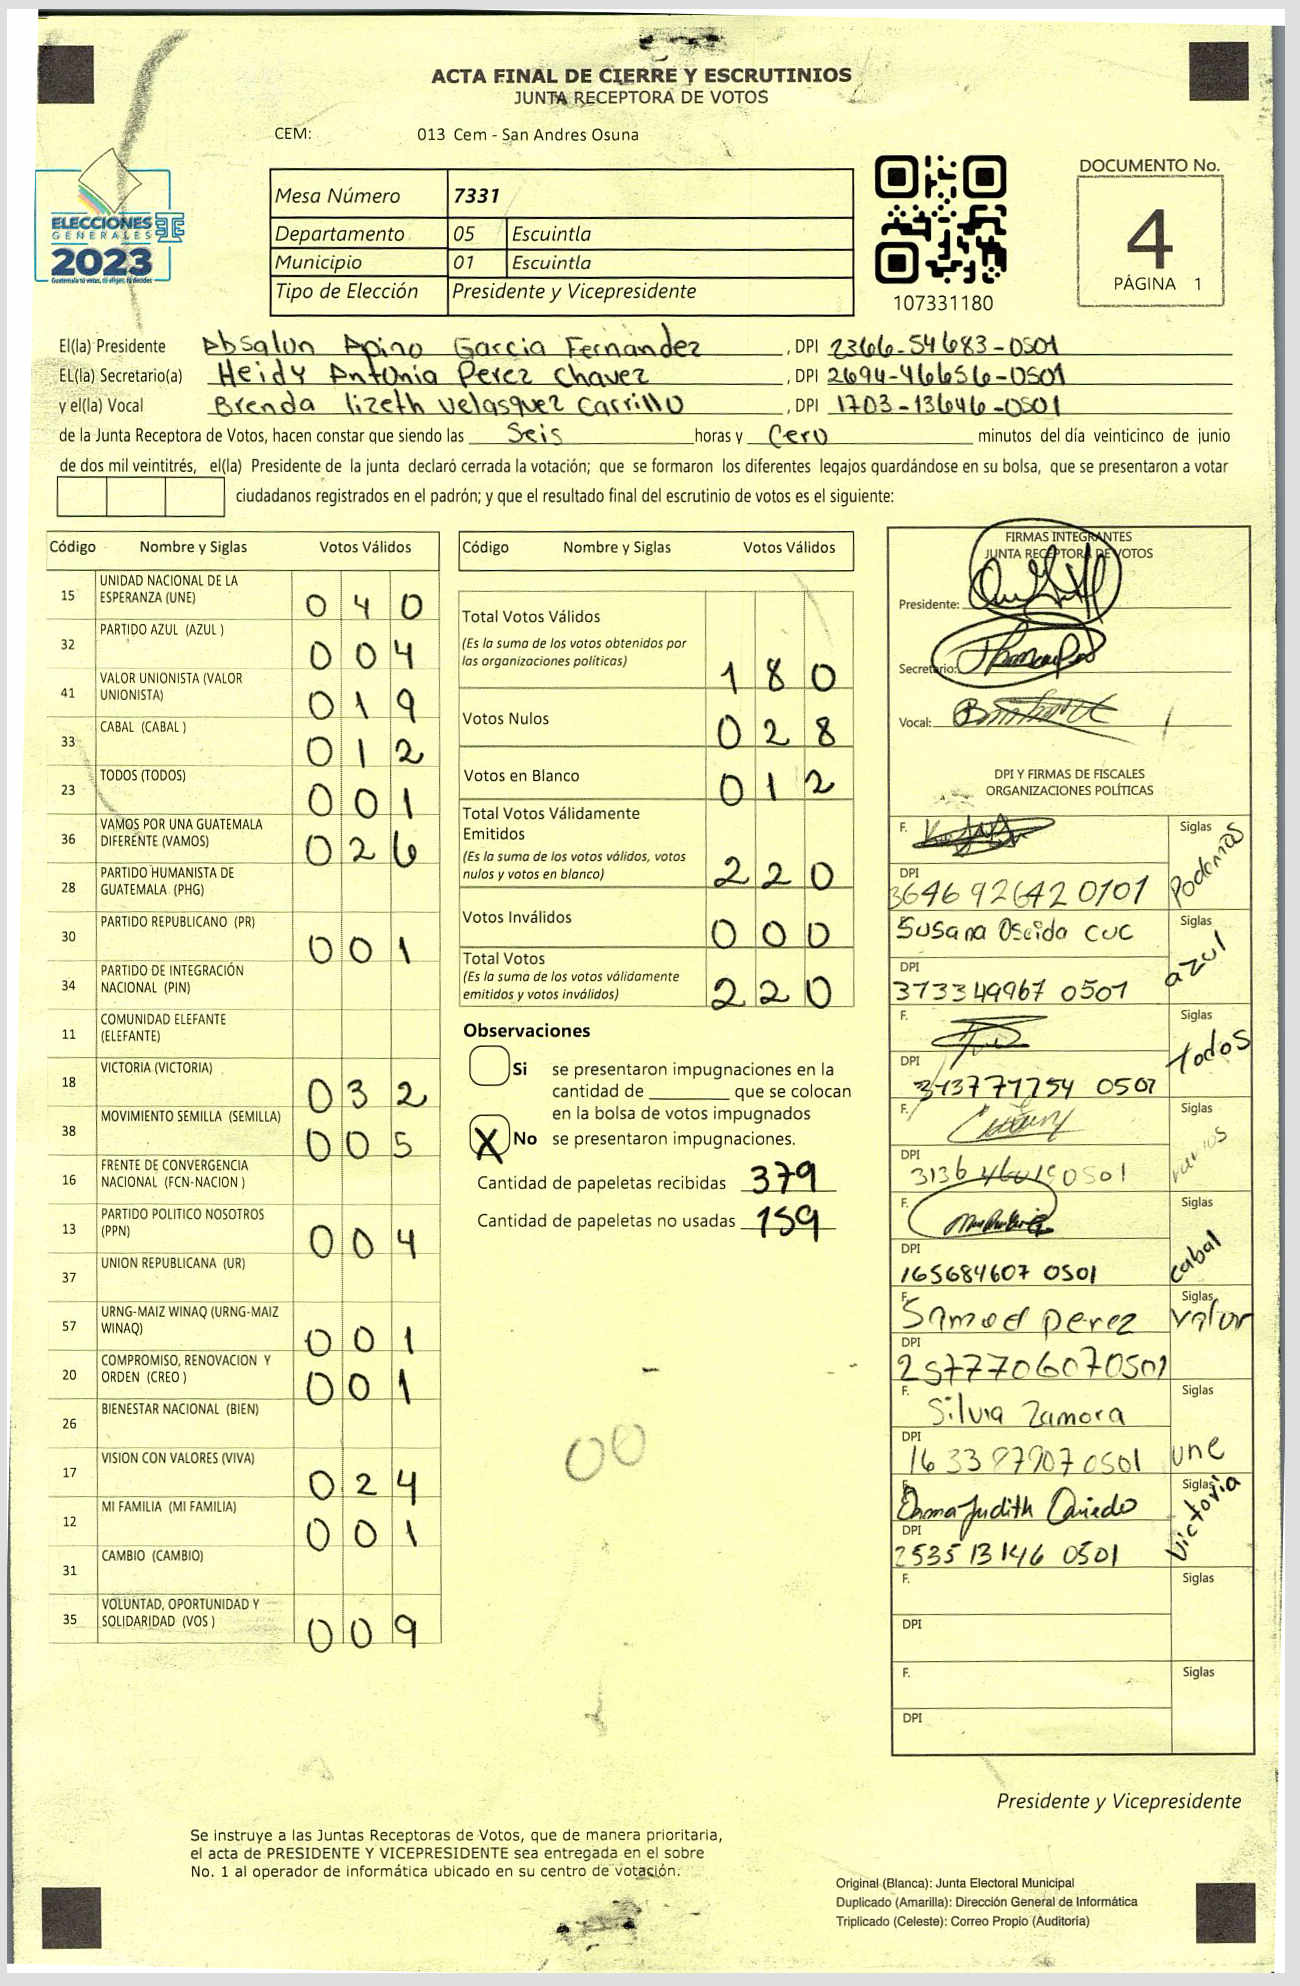 ACTA FINAL DE CIERRE Y ESCRUTINIOS
JUNTA RECEPTORA DE VOTOS
CEM: 013 Cem - San Andres Osuna
ELECCIONES
GENERALES
2023
Mesa Número 7331
Departamento 05 Escuintla
Municipio 01 Escuintla
Tipo de Elección Presidente y Vicepresidente
107331180
DOCUMENTO No.
4
PÁGINA 1
El(la) Presidente Absalon Apino Garcia Fernandez, DPI 2366-54683-0501
EL(la) Secretario(a) Heidy Antonia Perez Chavez, DPI 2694-46656-0501
y el(la) Vocal Brenda lizeth Velasquez Carrillo, DPI 1703-13646-0501
de la Junta Receptora de Votos, hacen constar que siendo las Seis horas y Cero minutos del día veinticinco de junio
de dos mil veintitrés, el(la) Presidente de la junta declaró cerrada la votación; que se formaron los diferentes legajos guardándose en su bolsa, que se presentaron a votar
ciudadanos registrados en el padrón; y que el resultado final del escrutinio de votos es el siguiente:
Código Nombre y Siglas Votos Válidos
15 UNIDAD NACIONAL DE LA ESPERANZA (UNE) 040
32 PARTIDO AZUL (AZUL ) 004
41 VALOR UNIONISTA (VALOR UNIONISTA) 019
33 CABAL (CABAL ) 012
23 TODOS (TODOS) 001
36 VAMOS POR UNA GUATEMALA DIFERENTE (VAMOS) 026
28 PARTIDO HUMANISTA DE GUATEMALA (PHG)
30 PARTIDO REPUBLICANO (PR) 001
34 PARTIDO DE INTEGRACIÓN NACIONAL (PIN)
11 COMUNIDAD ELEFANTE (ELEFANTE)
18 VICTORIA (VICTORIA) 032
38 MOVIMIENTO SEMILLA (SEMILLA) 005
16 FRENTE DE CONVERGENCIA NACIONAL (FCN-NACION )
13 PARTIDO POLITICO NOSOTROS (PPN) 004
37 UNION REPUBLICANA (UR)
57 URNG-MAIZ WINAQ (URNG-MAIZ WINAQ) 001
20 COMPROMISO, RENOVACION Y ORDEN (CREO ) 001
26 BIENESTAR NACIONAL (BIEN)
17 VISION CON VALORES (VIVA) 024
12 MI FAMILIA (MI FAMILIA) 001
31 CAMBIO (CAMBIO)
35 VOLUNTAD, OPORTUNIDAD Y SOLIDARIDAD (VOS ) 009
Código Nombre y Siglas Votos Válidos
Total Votos Válidos
(Es la suma de los votos obtenidos por
las organizaciones políticas) 180
Votos Nulos 028
Votos en Blanco 012
Total Votos Válidamente
Emitidos
(Es la suma de los votos válidos, votos
nulos y votos en blanco) 220
Votos Inválidos 000
Total Votos
(Es la suma de los votos válidamente
emitidos y votos inválidos) 220
Observaciones
Si se presentaron impugnaciones en la
cantidad de ________ que se colocan
en la bolsa de votos impugnados
X No se presentaron impugnaciones.
Cantidad de papeletas recibidas 379
Cantidad de papeletas no usadas 159
00
FIRMAS INTEGRANTES
JUNTA RECEPTORA DE VOTOS
Presidente:
Secretario:
Vocal:
DPI Y FIRMAS DE FISCALES
ORGANIZACIONES POLÍTICAS
F. Siglas Podemos
DPI 3646926420101
Susana Oseida cuc Siglas azul
DPI 373349967 0501
F. Siglas Todos
DPI 0501
F. Siglas
DPI 0501
F. Siglas cabal
DPI 165684607 0501
F. Perez Siglas Valor
DPI 2577706070501
F. Silvia Zamora Siglas une
DPI 0501
Judith Siglas Victoria
DPI 253513146 0501
F. Siglas
DPI
F. Siglas
DPI
Presidente y Vicepresidente
Se instruye a las Juntas Receptoras de Votos, que de manera prioritaria,
el acta de PRESIDENTE Y VICEPRESIDENTE sea entregada en el sobre
No. 1 al operador de informática ubicado en su centro de votación.
Original (Blanca): Junta Electoral Municipal
Duplicado (Amarilla): Dirección General de Informática
Triplicado (Celeste): Correo Propio (Auditoría)